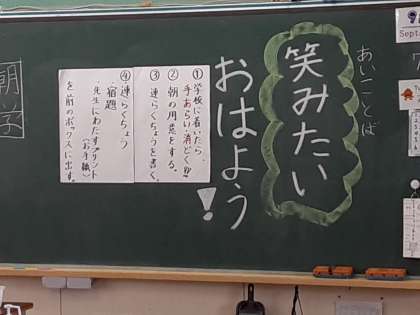 あいことば
笑みたい
おはよう!
①学校に着いたら、
手あらい・消どく
②朝の用意をする。
③連らくちょうを書く。
④連らくちょう
・宿題
・先生にわたすプリント
(お手紙)
を前のボックスに出す。
朝学
Sept